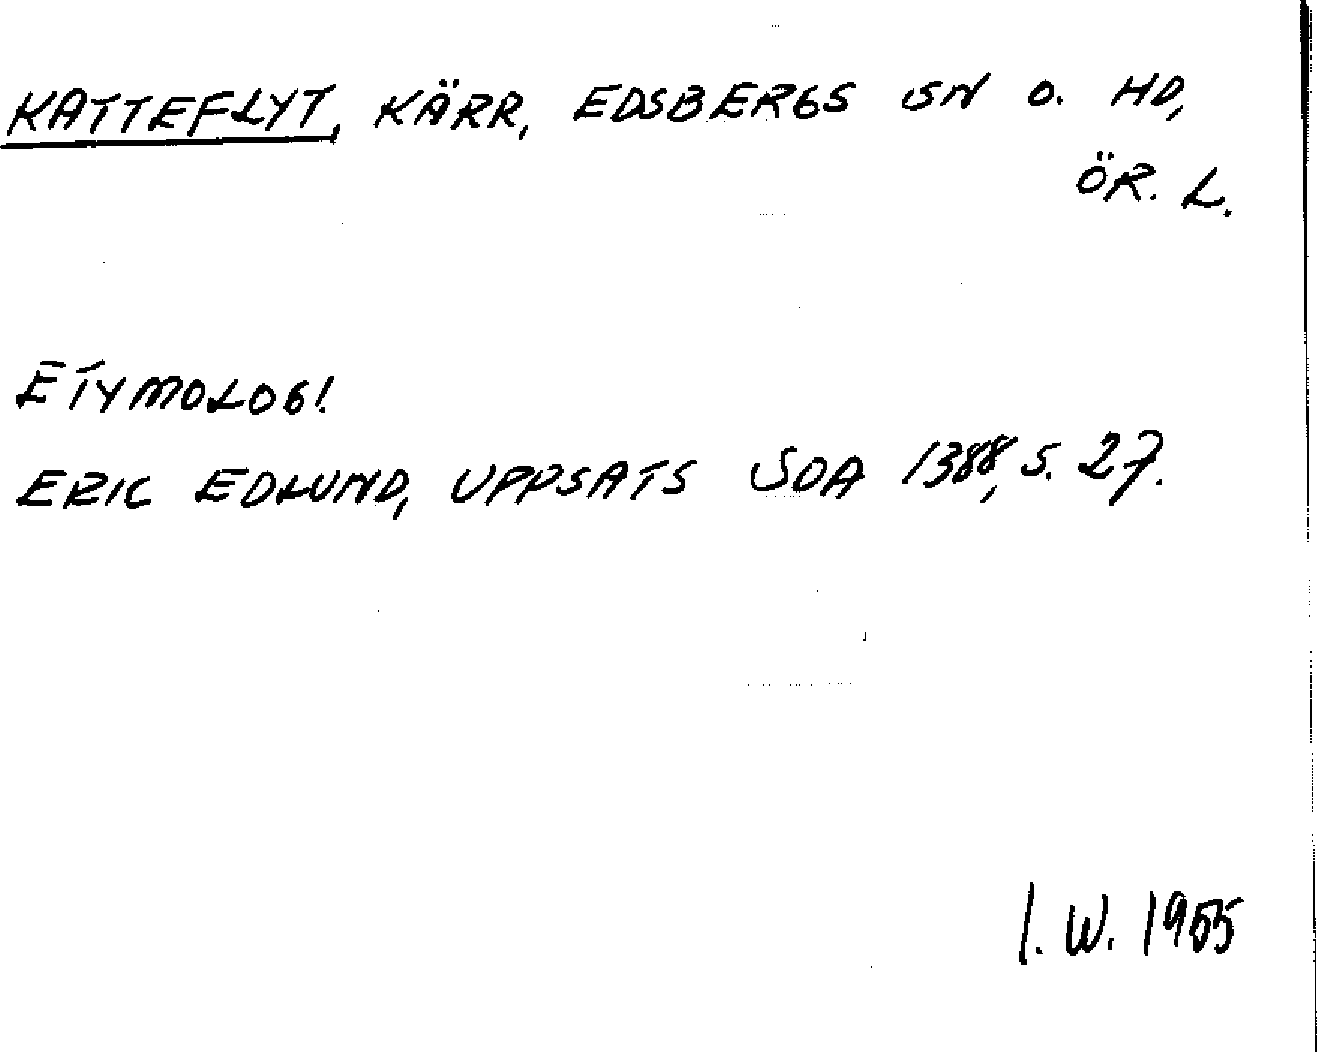 KATTEFLYT, KÄRR, EDSBERGS SN O. HD,
ÖR. L.
ETYMOLOGI.
ERIC EDLUND, UPPSATS SOA 1388, S. 27.
I. W. 1955